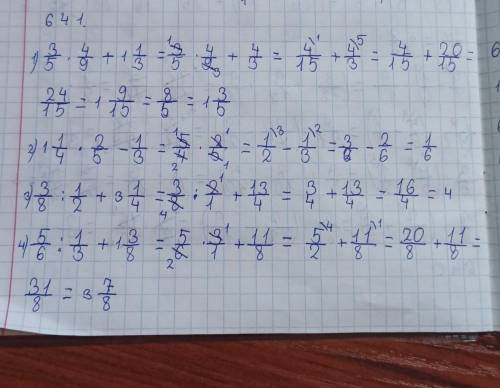 641.
1) 3/5 · 4/9 + 1 1/3 = 3/5 · 4/9 + 4/3 = 4/15 + 4/3 = 4/15 + 20/15 =
24/15 = 1 9/15 = 8/5 = 1 3/5
2) 1 1/4 · 2/5 - 1/3 = 5/4 · 2/5 - 1/3 = 1/2 - 1/3 = 3/6 - 2/6 = 1/6
3) 3/8 : 1/2 + 3 1/4 = 3/8 · 2/1 + 13/4 = 3/4 + 13/4 = 16/4 = 4
4) 5/6 : 1/3 + 1 3/8 = 5/6 · 3/1 + 11/8 = 5/2 + 11/8 = 20/8 + 11/8 =
31/8 = 3 7/8